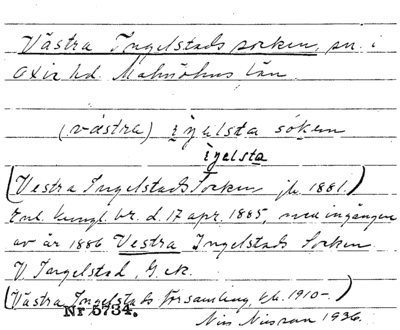 Västra Ingelstads socken, sn. i
Oxie hd. Malmöhus län.
(västra) iŋelsta sókən
iŋelsta
(Vestra Ingelstads Socken jb. 1881.)
Enl. kungl. br. d. 17 apr. 1885, med ingången
av år 1886 Vestra Ingelstads Socken.
V. Ingelstad, G. ek.
(Västra Ingelstads församling, kb. 1910-.)
Nr 5734.
Nils Nilsson 1936.